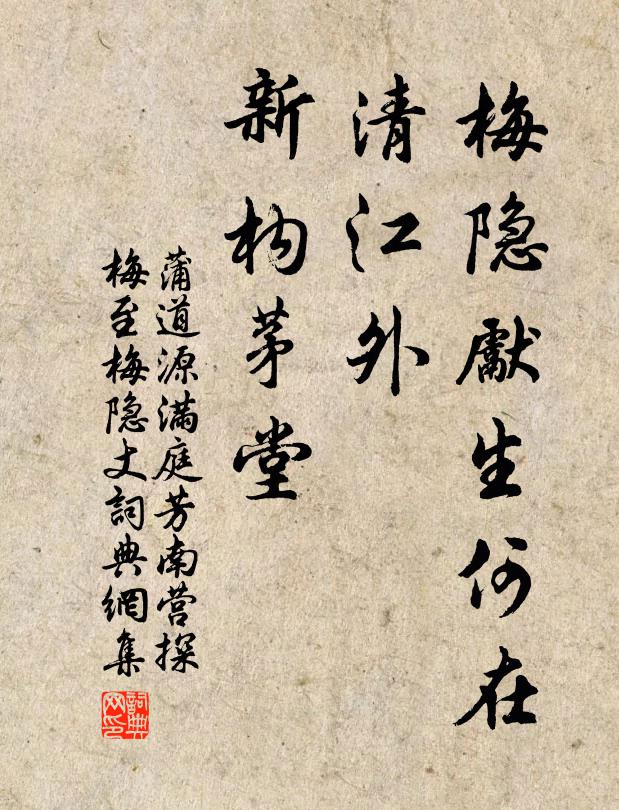 梅隐獻生何在
清江外
新构茅堂
蒲道源满庭芳南营探
梅至梅隐丈詞典網集
詞典
网印